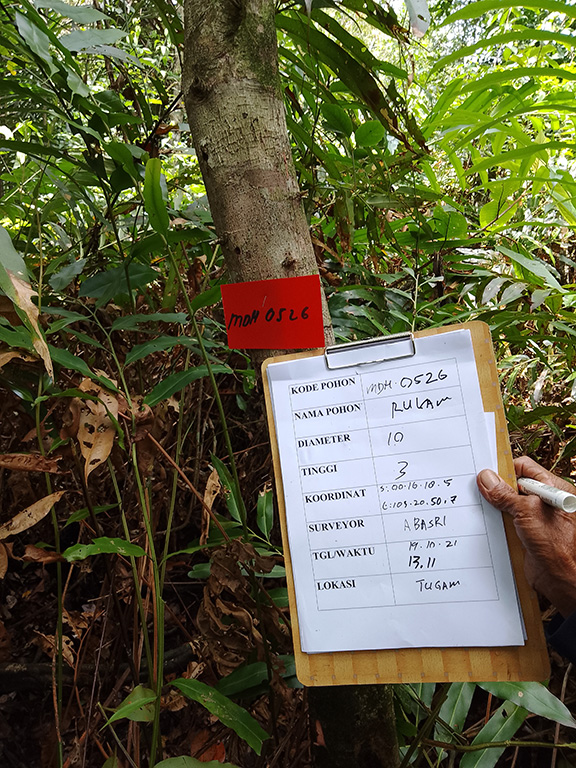 MDH 0526
KODE POHON MDH.0526
NAMA POHON RUKAM
DIAMETER 10
TINGGI 3
KOORDINAT S:00.16.10.5
E:103.20.50.7
SURVEYOR ABASRI
TGL/WAKTU 19.10.21
13.11
LOKASI TUGAM